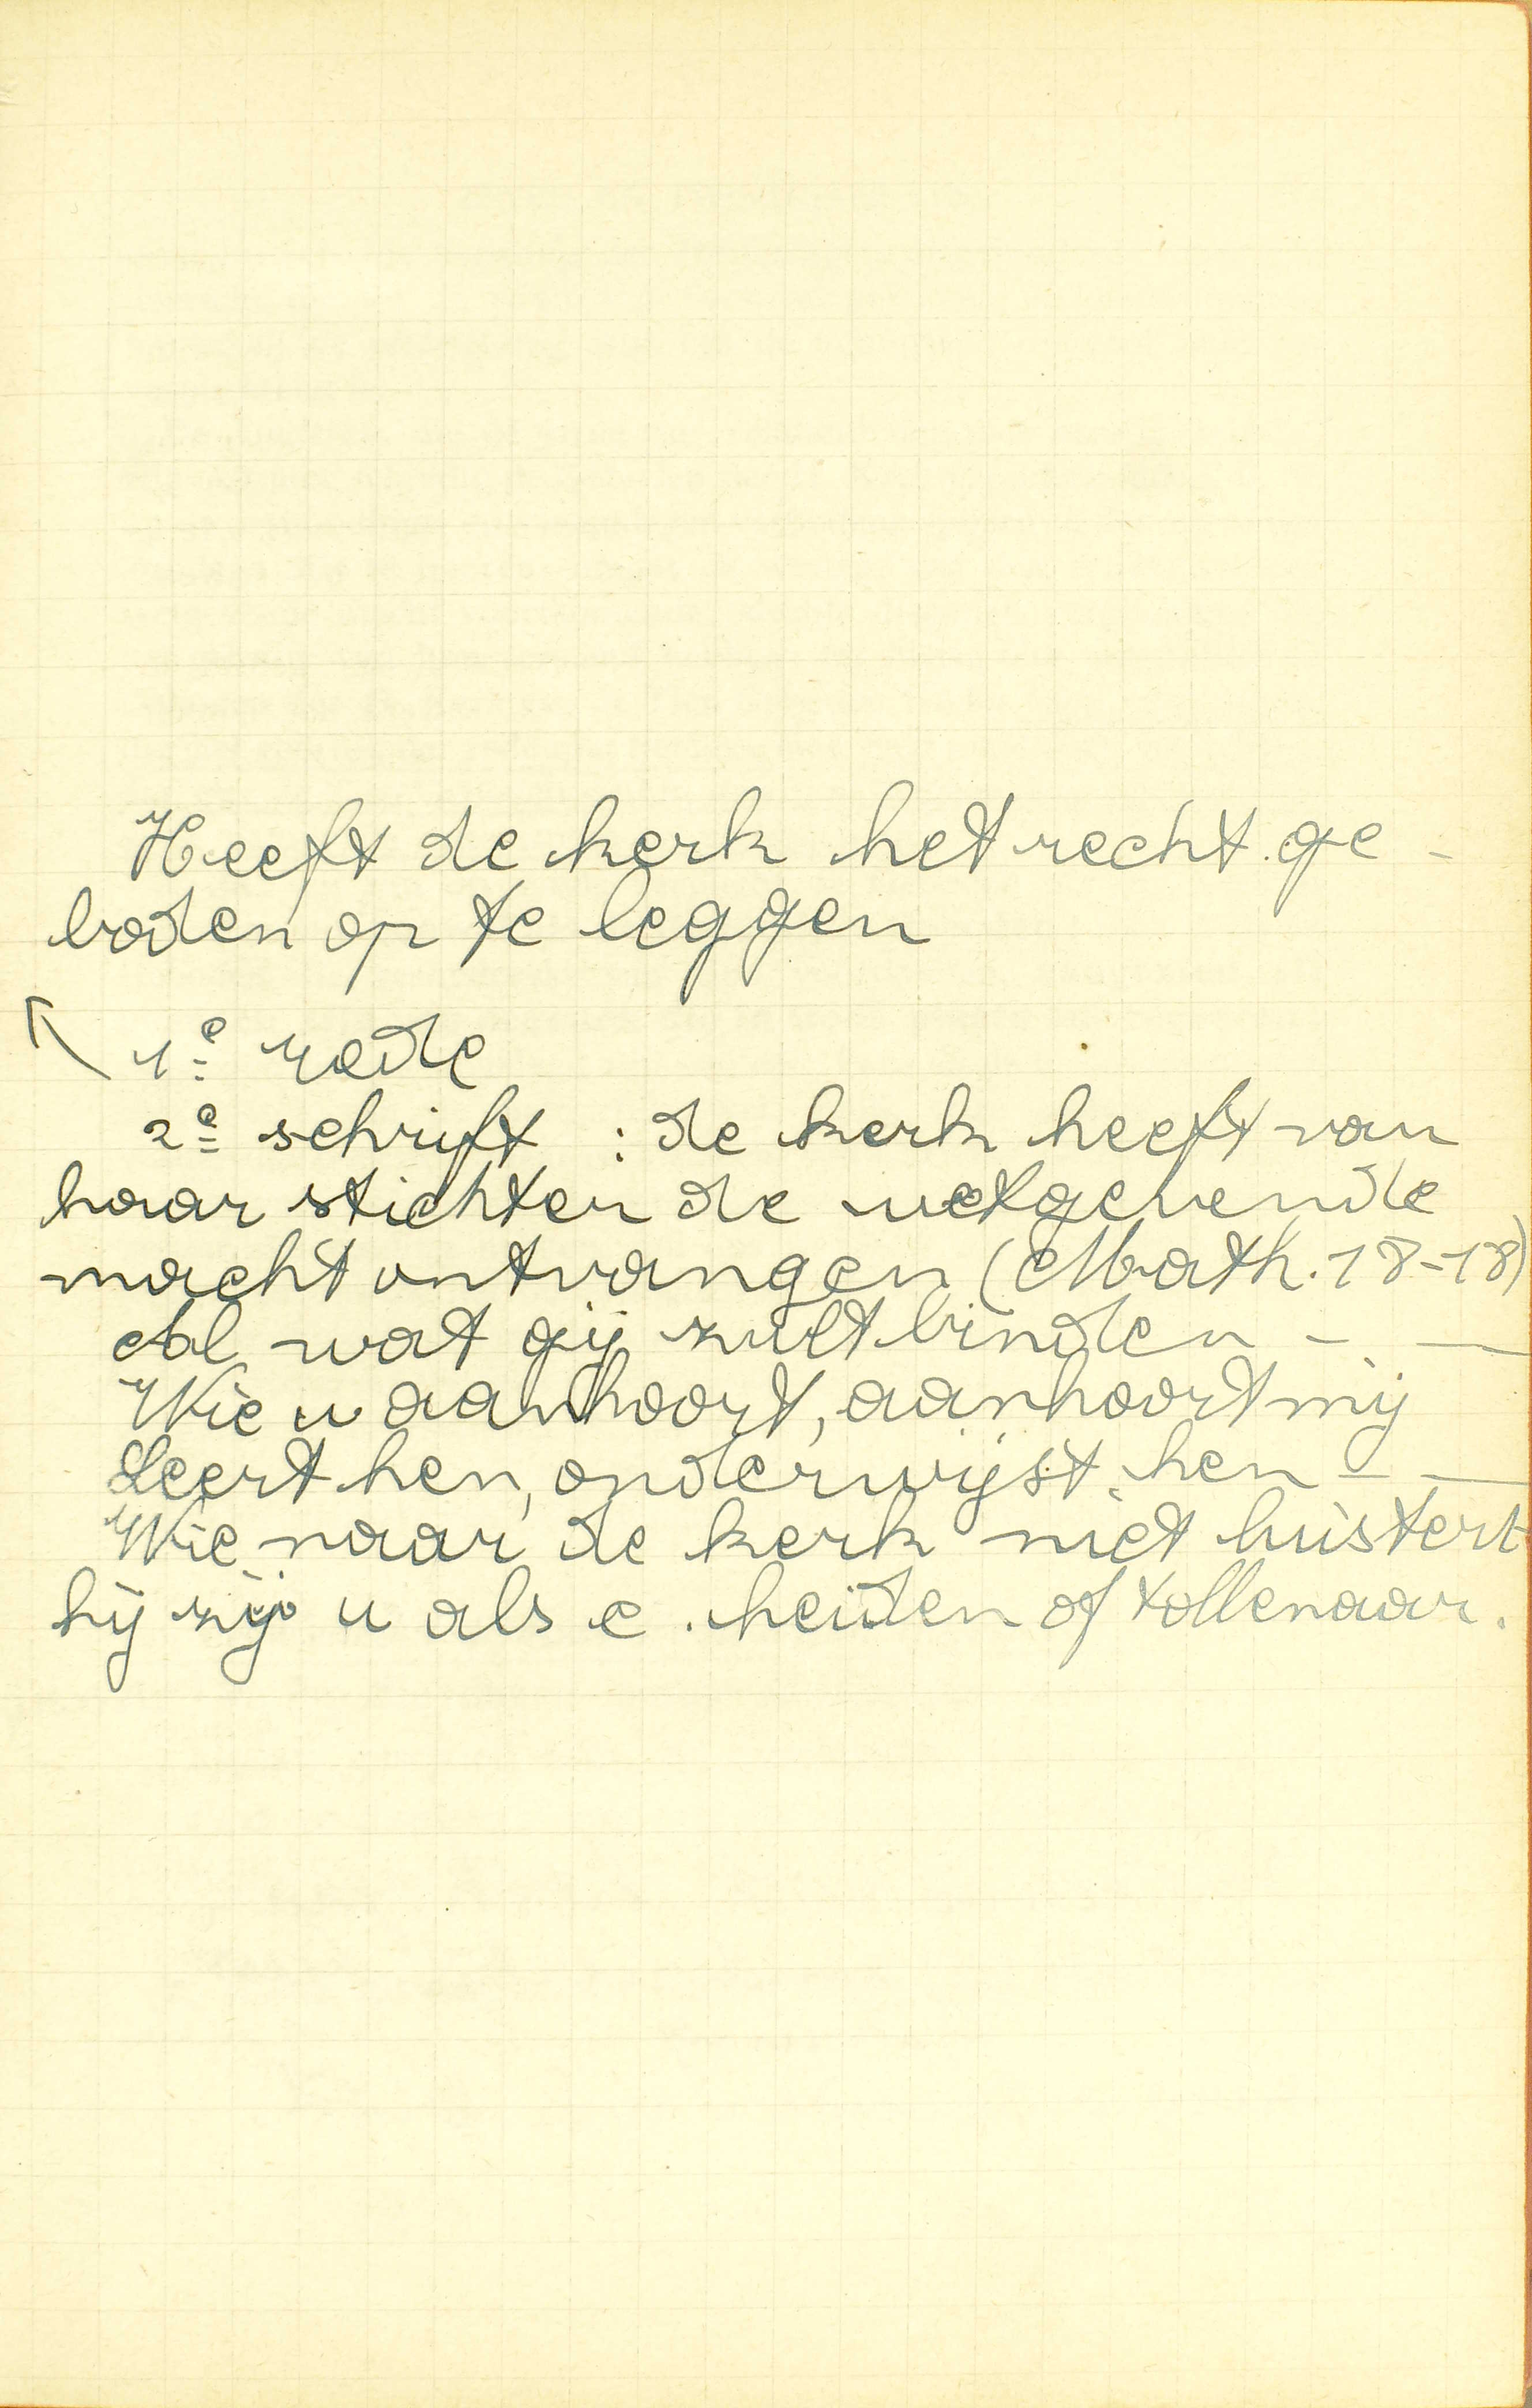 Heeft de kerk het recht ge-
boden op te leggen
1e rede
2e schrift : de kerk heeft van
haar stichter de wetgevende
macht ontvangen (Math. 18-18)
Al wat gij zult binden - —
Wie u aanhoort, aanhoort mij
Leert hen, onderwijst hen - —
Wie naar de kerk niet luistert
hij zij u als e. heiden of tollenaar.